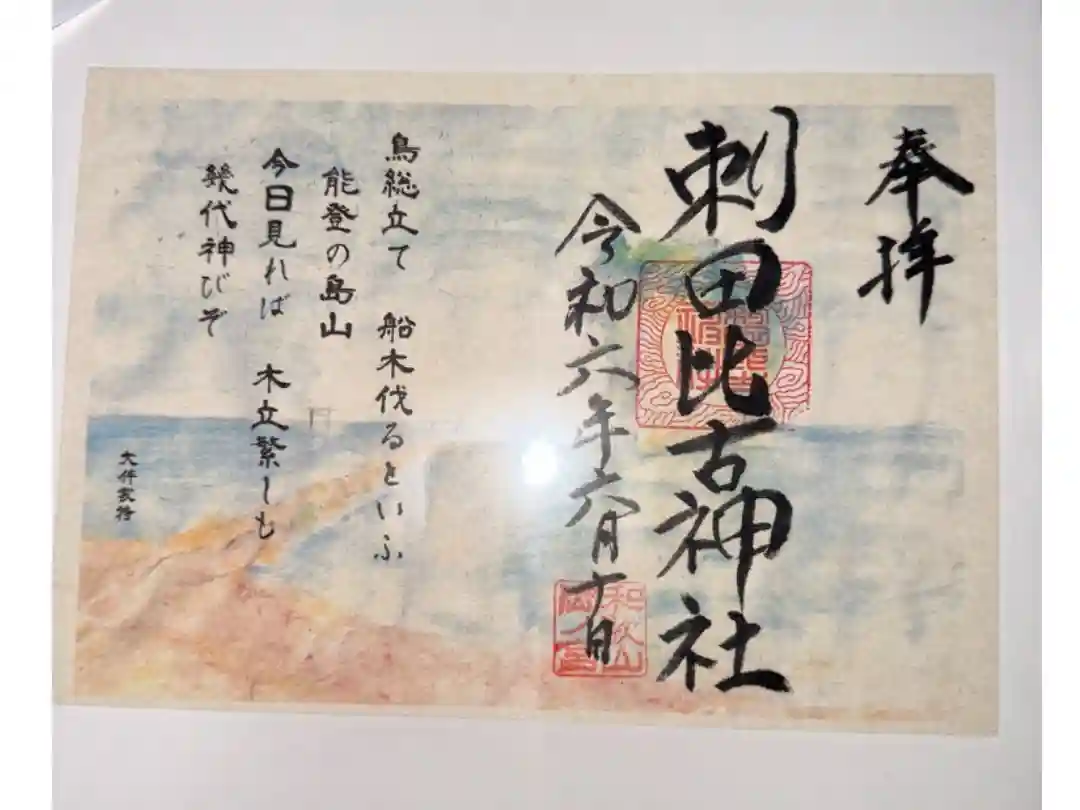 奉拝
刺田比古神社
令和六年六月十日
鳥総立て 船木伐るといふ
能登の島山
今日見れば 木立繁しも
幾代神びぞ
大伴家持